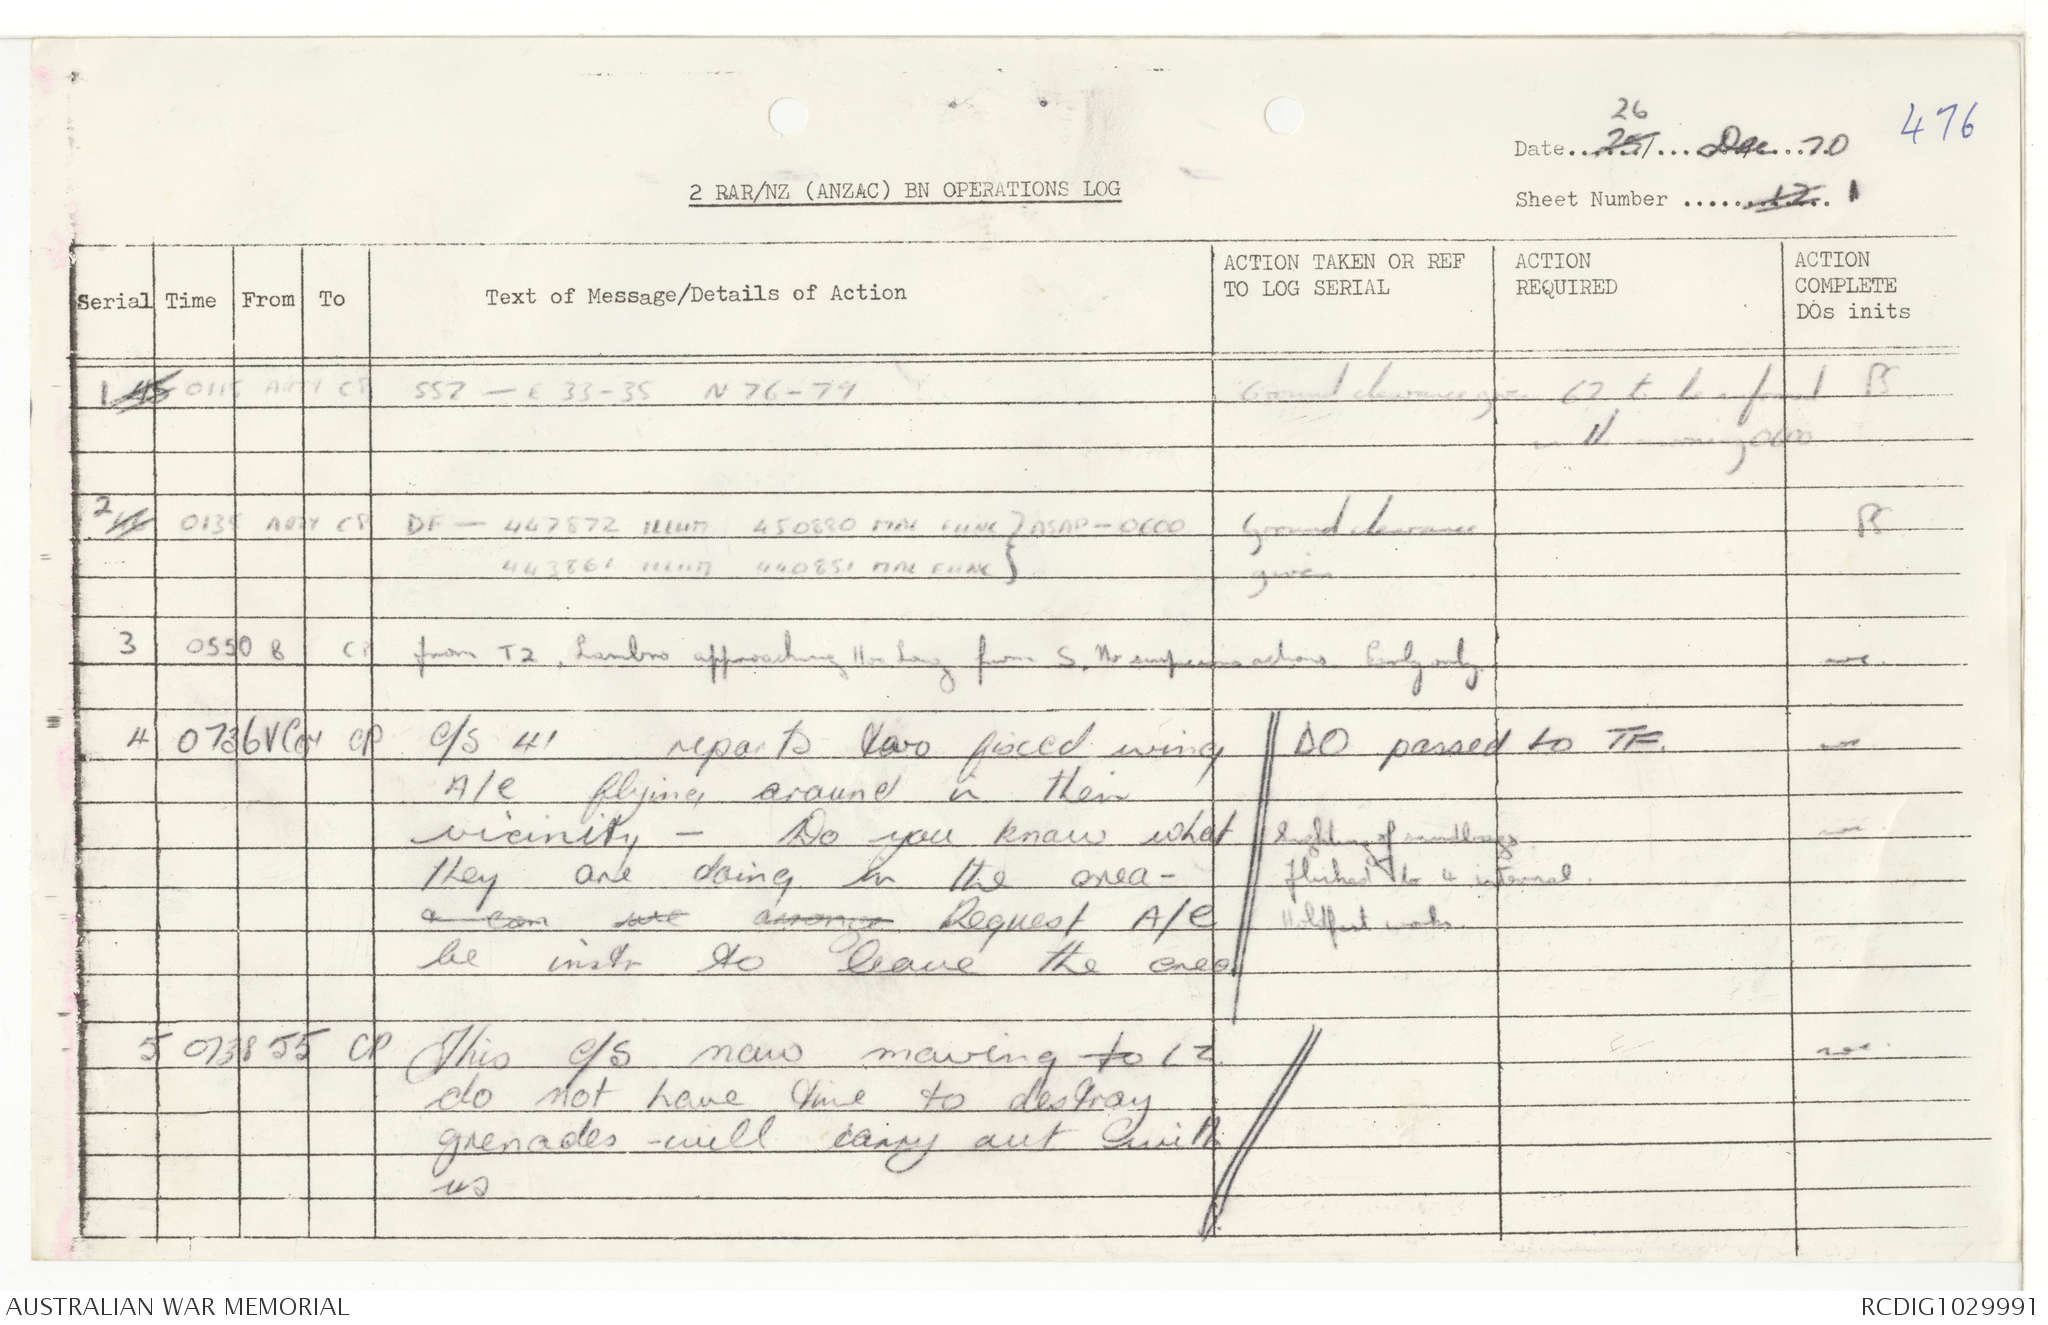 26
476
Date 25/ Dec 70
2 RAR/NZ (ANZAC) BN OPERATIONS LOG
Sheet Number 12 1
Serial Time From To Text of Message/Details of Action
ACTION TAKEN OR REF TO LOG SERIAL
ACTION REQUIRED
ACTION COMPLETE DOs inits
1 45 0115 ARTY CP 557 - E 33-35 N 76-79 Ground clearance given 62 to be informed
in the morning 0600
2 0135 ARTY CP DF - 447872 ILLUM 450880 MAL FUNC } ASAP-0600 Ground clearance
443861 ILLUM 440851 MAL FUNC } given
3 0550 8 CP from T2, Lambro approaching Hoa Long from S. No suspicious actions. Early only.
4 0736 V Coy CP C/S 41 reports two fixed wing DO passed to TF.
A/C flying around in their
vicinity - Do you know what
they are doing in the area - flushed to 4 internal.
a can we arrange Request A/C
be instr to leave the area
5 0738 55 CP This C/S now moving to LZ
do not have time to destroy
grenades - will carry out with
us
AUSTRALIAN WAR MEMORIAL
RCDIG1029991